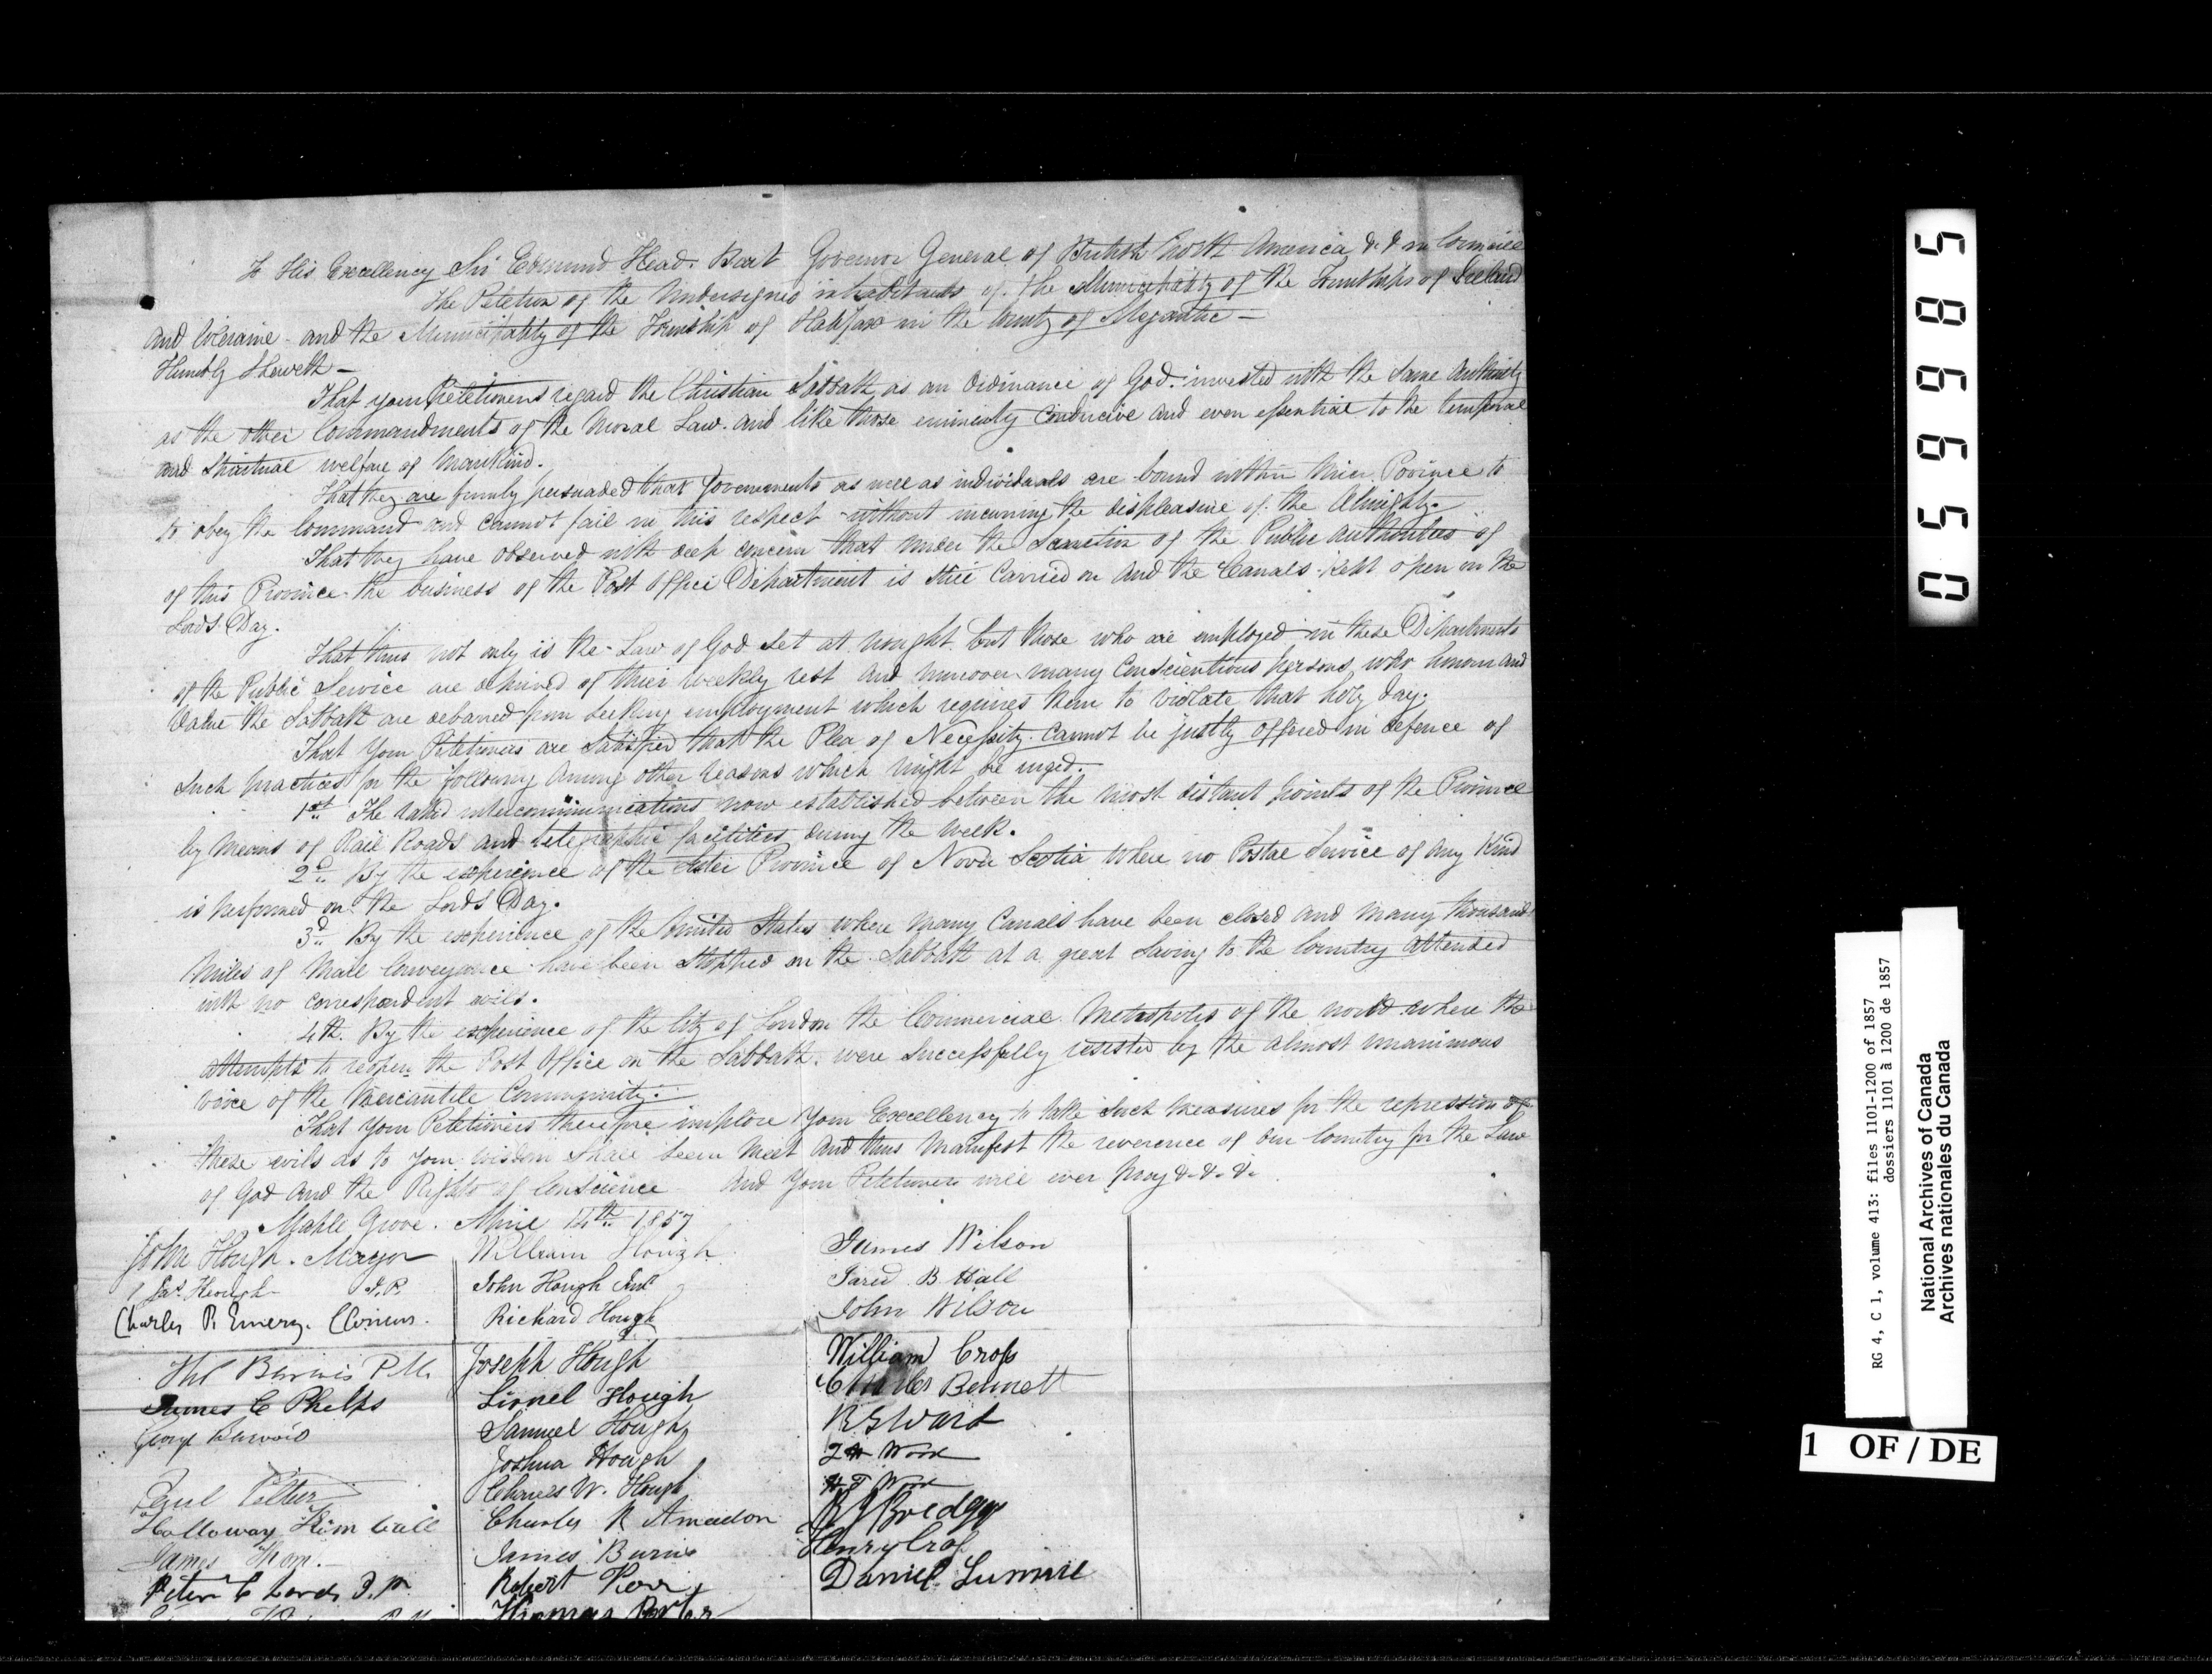 To His Excellency Sir Edmund Head. Bart Governor General of British North America &c &c in Council
The Petition of the Undersigned inhabitants of the Municipality of the Townships of Ireland
and Coleraine - and the Municipality of the Township of Halifax in the County of Megantic -
Humbly Sheweth -
That your Petitioners regard the Christian Sabbath as an Ordinance of God. invested with the Same Authority
as the other Commandments of the Moral Law. and like those eminently Conducive and even essential to the temporal
and Spiritual welfare of Mankind.
That they are firmly persuaded that Governments as well as individuals are bound within their Province to
to obey the Command and cannot fail in this respect without incurring the displeasure of the Almighty.
That they have observed with deep concern that under the Sanction of the Public Authorities of
of this Province the business of the Post Office Department is still Carried on and the Canals kept open on the
Lords Day.
That thus not only is the Law of God set at nought but those who are employed in these Departments
of the Public Service are deprived of their weekly rest and moreover many Conscientious persons who honour and
Value the Sabbath are debarred from seeking employment which requires them to violate that holy day.
That Your Petitioners are Satisfied that the Plea of Necessity cannot be justly offered in defence of
Such practices for the following among other reasons which might be urged.
1st The rapid intercommunications now established between the most distant points of the Province
by means of Rail Roads and telegraphic facilities during the week.
2d By the experience of the Sister Province of Nova Scotia where no Postal Service of any Kind
is performed on the Lords Day.
3d By the experience of the United States where many Canals have been closed and many thousand
Miles of Mail Conveyance have been stopped on the Sabbath at a great saving to the Country attended
with no correspondent evils.
4th. By the experience of the City of London the Commercial Metropolis of the world where the
attempts to reopen the Post Office on the Sabbath were Successfully resisted by the almost unanimous
voice of the Mercantile Community.
That Your Petitioners therefore implore Your Excellency to take such measures for the repression of
these evils as to your wisdom shall seem meet and thus Manifest the reverence of our Country for the Law
of God and the Rights of Conscience and Your Petitioners will ever pray &. &. &.
Maple Grove. April 14th 1857
John Hough. Mayor
Hough J.P.
Charles P. Emery.
P M.
James C Phelps
George
Holloway Kimball
James Thom.
Peter C Lord J.P.
William Hough
John Hough Junr
Richard Hough
Joseph Hough
Lionel Hough
Samuel Hough
Joshua Hough
Charles W. Hough
Charles R Amedon
James Burns
Robert Kerr
Thomas Porter
James Wilson
Jared B Hall
John Wilson
William Cross
Charles Bennett
R S Ward
Henry Cross
Daniel
0 5 9 9 8 5
RG 4, C 1, volume 413: files 1101-1200 of 1857
dossiers 1101 à 1200 de 1857
National Archives of Canada
Archives nationales du Canada
1 OF / DE